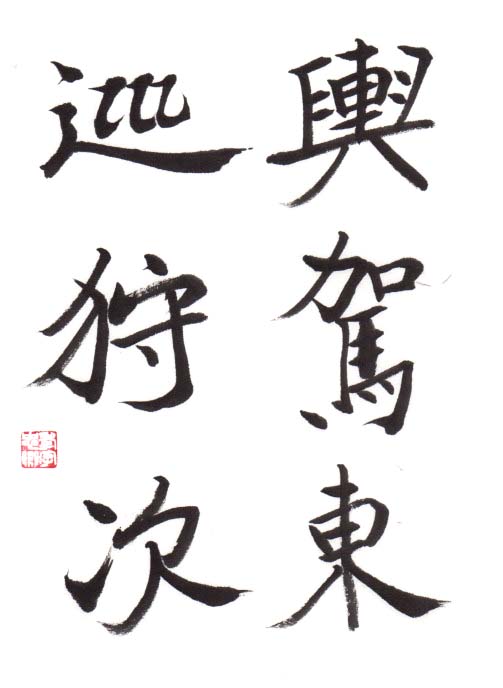 輿駕東
巡狩次